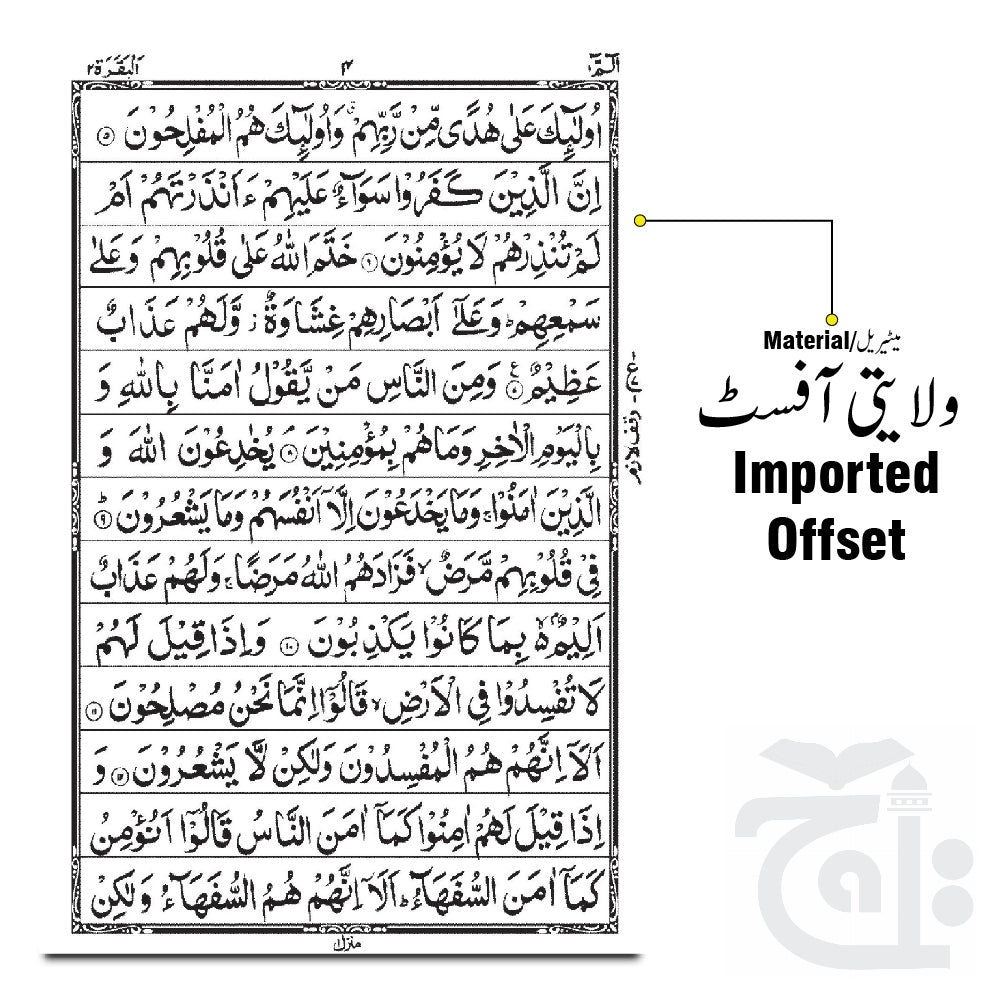 الٓمّٓ ١
٣
اَلْبَقَرَة ٢
اُولٰٓئِكَ عَلٰى هُدًى مِّنْ رَّبِّهِمْ ۙ وَاُولٰٓئِكَ هُمُ الْمُفْلِحُوْنَ ۝۵
اِنَّ الَّذِيْنَ كَفَرُوْا سَوَآءٌ عَلَيْهِمْ ءَاَنْذَرْتَهُمْ اَمْ
لَمْ تُنْذِرْهُمْ لَا يُؤْمِنُوْنَ ۝۶ خَتَمَ اللّٰهُ عَلٰى قُلُوْبِهِمْ وَعَلٰى
سَمْعِهِمْ ؕ وَعَلٰٓى اَبْصَارِهِمْ غِشَاوَةٌ ز وَّلَهُمْ عَذَابٌ
عَظِيْمٌ ۝۷ ع وَمِنَ النَّاسِ مَنْ يَّقُوْلُ اٰمَنَّا بِاللّٰهِ وَ
بِالْيَوْمِ الْاٰخِرِ وَمَا هُمْ بِمُؤْمِنِيْنَ ۝۸ يُخٰدِعُوْنَ اللّٰهَ وَ
الَّذِيْنَ اٰمَنُوْا ۚ وَمَا يَخْدَعُوْنَ اِلَّآ اَنْفُسَهُمْ وَمَا يَشْعُرُوْنَ ؕ ۝۹
فِىْ قُلُوْبِهِمْ مَّرَضٌ ۙ فَزَادَهُمُ اللّٰهُ مَرَضًا ۚ وَلَهُمْ عَذَابٌ
اَلِيْمٌ ۢ ۙ بِمَا كَانُوْا يَكْذِبُوْنَ ۝۱۰ وَاِذَا قِيْلَ لَهُمْ
لَا تُفْسِدُوْا فِى الْاَرْضِ ۙ قَالُوْٓا اِنَّمَا نَحْنُ مُصْلِحُوْنَ ۝۱۱
اَلَآ اِنَّهُمْ هُمُ الْمُفْسِدُوْنَ وَلٰكِنْ لَّا يَشْعُرُوْنَ ۝۱۲ وَ
اِذَا قِيْلَ لَهُمْ اٰمِنُوْا كَمَآ اٰمَنَ النَّاسُ قَالُوْٓا اَنُؤْمِنُ
كَمَآ اٰمَنَ السُّفَهَآءُ ؕ اَلَآ اِنَّهُمْ هُمُ السُّفَهَآءُ وَلٰكِنْ
منزل ١
وقف لازم
Material/میٹیریل
ولایتی آفسٹ
Imported
Offset